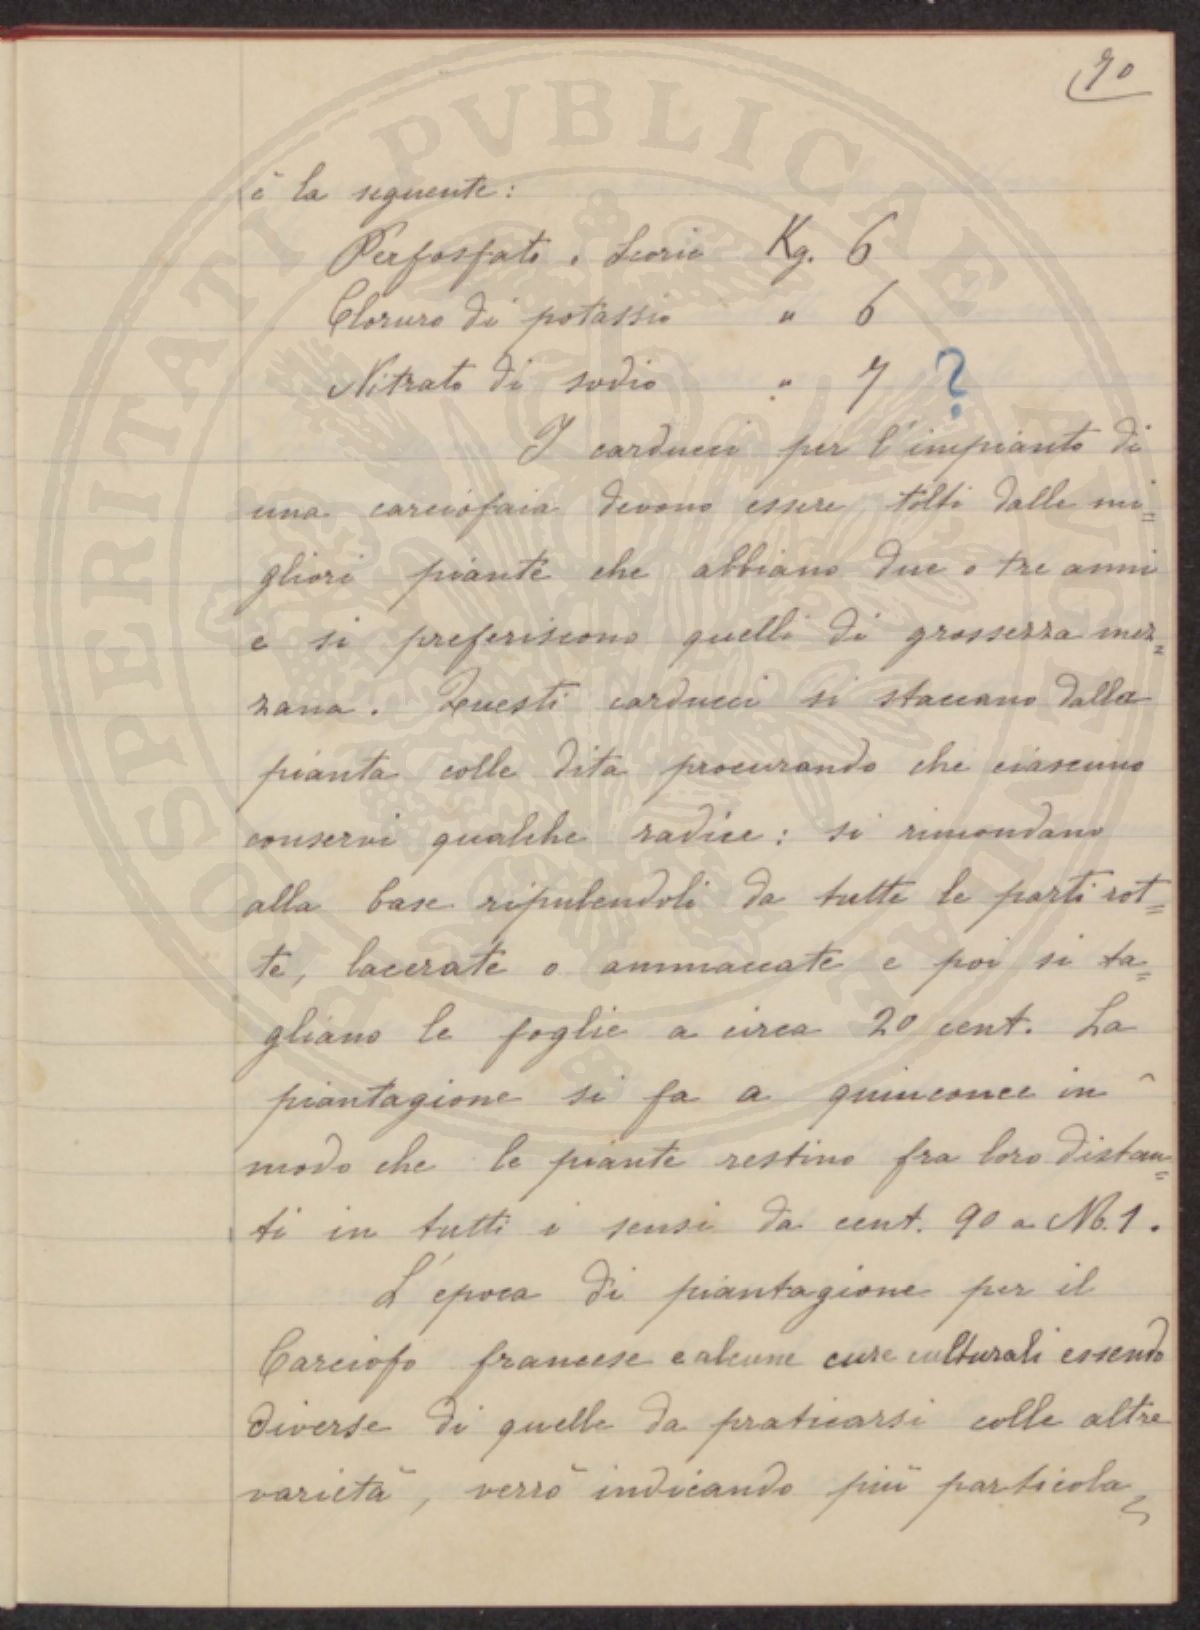 70
è la seguente:
Perfosfato o Scorie Kg. 6
Cloruro di potassio " 6
Nitrato di sodio " 7 ?
I carducci per l'impianto di
una carciofaia devono essere tolti dalle mi=
gliori piante che abbiano due o tre anni
e si preferiscono quelli di grossezza mez=
zana. Questi carducci si staccano dalla
pianta colle dita procurando che ciascuno
conservi qualche radice: si rimondano
alla base ripulendoli da tutte le parti rot=
te, lacerate o ammaccate e poi si ta=
gliano le foglie a circa 20 cent. La
piantagione si fa a quinconce in
modo che le piante restino fra loro distan=
ti in tutti i sensi da cent. 90 a M. 1.
L'epoca di piantagione per il
Carciofo francese e alcune cure culturali essendo
diverse di quelle da praticarsi colle altre
varietà, verrò indicando più particola=
PROSPERITATI PVBLICAE AVGENDAE